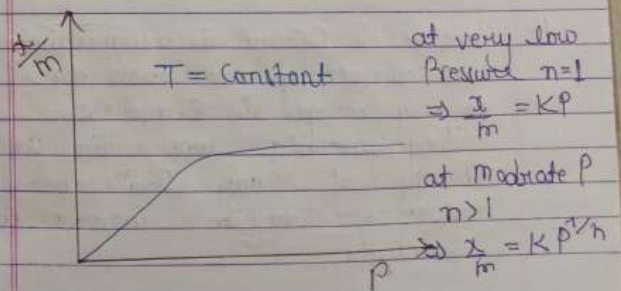 x/m
T = Constant
at very low
Pressure n=1
⇒ x/m = KP
at Modrate P
n>1
⇒ x/m = KP^1/n
P